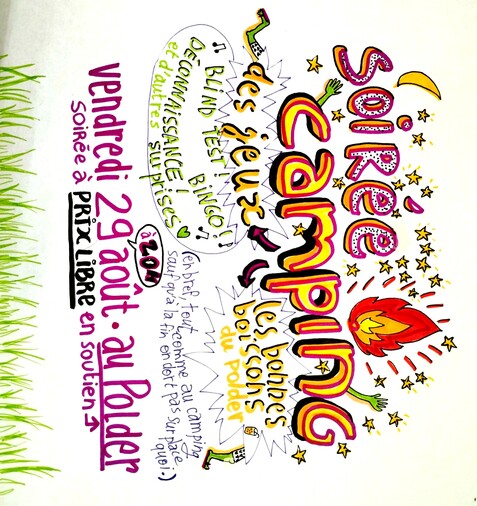 SOIRÉE
CAMPING
des jeux
BLIND TEST! BINGO!
DÉCONNAISSANCE!
et d'autres surprises
les bonnes
boissons
du Polder
(enbref, tout comme au camping
sauf qu'à la fin on dort pas sur place
quoi.)
à 20H
vendredi 29 août. au Polder
soirée à PRIX LIBRE en soutien